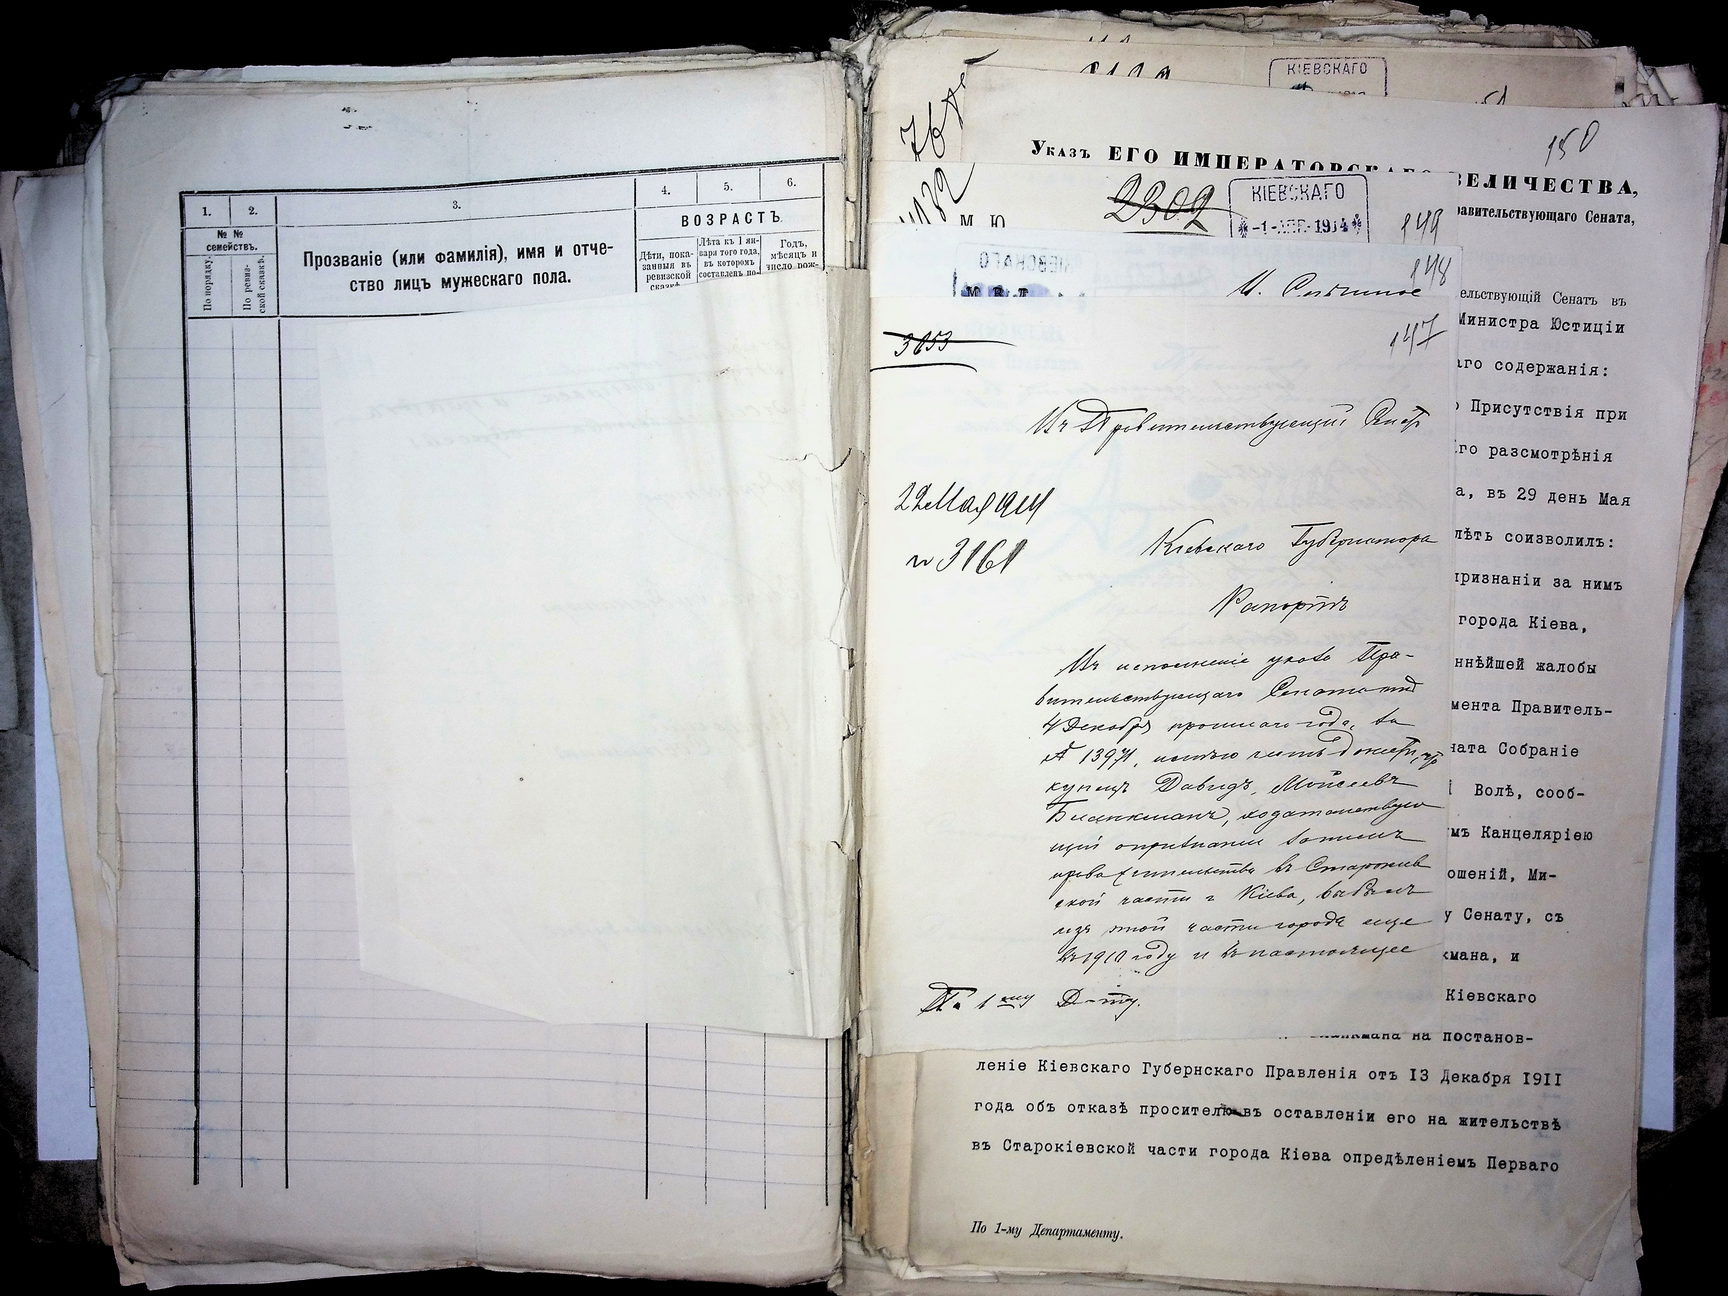 1.
2.
3.
4.
5.
6.
№ №
семействъ.
По порядку.
По ревиз-
ской сказкѣ.
Прозваніе (или фамилія), имя и отче-
ство лицъ мужескаго пола.
ВОЗРАСТЪ
Дѣти, пока-
занныя въ
ревизской
сказкѣ
Лѣта къ 1 ян-
варя того года,
въ которомъ
составленъ по-
Годъ,
мѣсяцъ и
число рож-
КІЕВСКАГО
150
Указъ ЕГО ИМПЕРАТОРСКАГО ВЕЛИЧЕСТВА,
равительствующаго Сената,
2302
КІЕВСКАГО
-1-АПР.1914
149
М Ю
148
М В Д
147
3053
Въ Правительствующій Сенатъ
22 Мая 1914
№ 3161
Кіевскаго Губернатора
Рапортъ
Въ исполненіе указа Пра-
вительствующаго Сената отъ
4 Декабря прошлаго года, за
№ 13971,
купецъ Давидъ Мойсеевъ
Бланкманъ, ходатайствую
щій о признаніи за нимъ
права жительства въ Старокіев
ской части г Кіева, выбылъ
изъ этой части города еще
въ 1911 году и въ настоящее
По 1му Д-ту.
ельствующій Сенатъ въ
Министра Юстиціи
аго содержанія:
Присутствія при
го разсмотрѣнія
а, въ 29 день Мая
лѣть соизволилъ:
признаніи за нимъ
города Кіева,
ннѣйшей жалобы
мента Правитель-
ната Собраніе
Волѣ, сооб-
мъ Канцеляріею
ошеній, Ми-
у Сенату, съ
кмана, и
Кіевскаго
на постанов-
леніе Кіевскаго Губернскаго Правленія отъ 13 Декабря 1911
года объ отказѣ просителю въ оставленіи его на жительствѣ
въ Старокіевской части города Кіева опредѣленіемъ Перваго
По 1-му Департаменту.